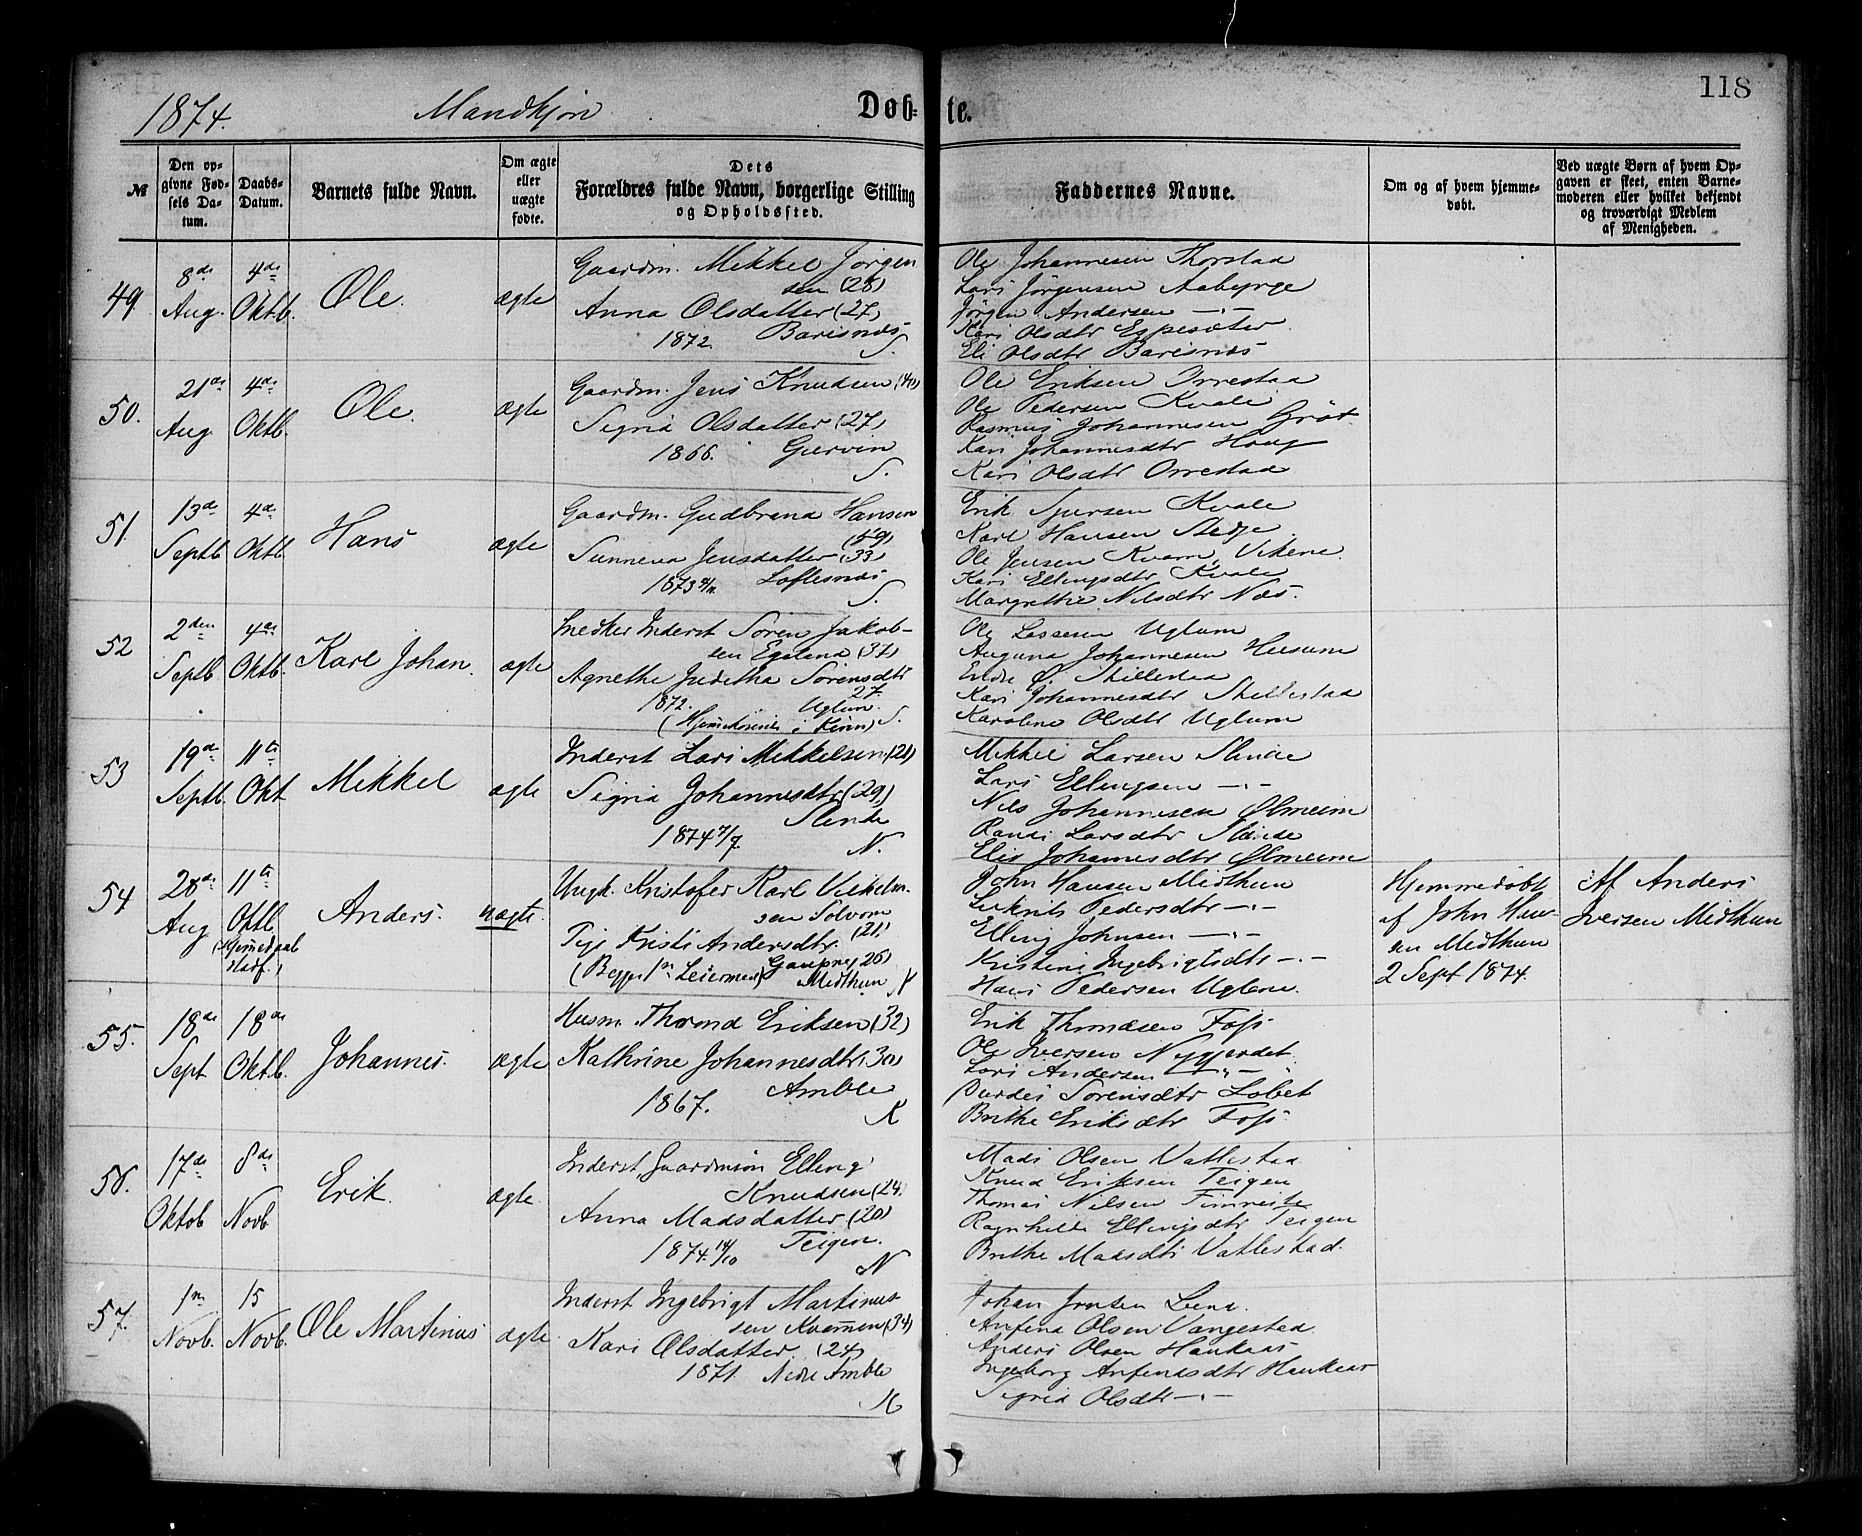 118
1874. Mandkjøn Døb- te.
№
Den op-
givne Fød-
sels Da-
tum.
Daabs-
Datum.
Barnets fulde Navn.
Om ægte
eller
uægte
fødte.
Dets
Forældres fulde Navn, borgerlige Stilling
og Opholdssted.
Faddernes Navne.
Om og af hvem hjemme-
døbt.
Ved uægte Børn af hvem Op-
gaven er skeet, enten Barne-
moderen eller hvilket bekjendt
og troværdigt Medlem
af Menigheden.
49.
8de
Aug.
4de
Oktb.
Ole.
ægte
Gaardm. Mikkel Jörgen
sen (28)
Anna Olsdatter (27)
1872. Barisnæs
S.
Ole Johannesen Thorstad
Lars Jörgensen Aaberge
Jörgen Andersen —"—
Kari Olsdtr Espesæter
Eli Olsdtr Barisnæs
50.
21de
Aug
4de
Oktb.
Ole.
ægte
Gaardm. Jens Knudsen (40)
Sigrid Olsdatter (27)
1866. Gurvin
S.
Ole Eriksen Orrestad
Ole Pedersen Kvale
Rasmus Johannesen Gröt.
Kari Johannesdtr Haug
Kari Olsdtr Orrestad
51.
13de
Septb
4de
Oktb.
Hans
ægte
Gaardm. Gudbrand Hansen
(59)
Sunneva Jensdatter (33)
1873 Loftesnæs
S.
Erik Sjursen Kvale
Karl Hansen Stedje.
Ole Jensen Kvam, Vikene.
Kari Ellingsdtr Kvale
Margrethe Nilsdtr Næs.
52
2den
Septb
4de
Oktb.
Karl Johan.
ægte
Snedker Inderst Sören Jakob-
sen Egeland (37)
Agnethe Juditha Sörensdtr
27.
1872. Uglum.
(Hjemhörende i Kinn) S.
Ole Lassesen Uglum
Johannesen Husum
Endre Ø. Skillestad
Kari Johannesdtr Skillestad
Karoline Olsdtr Uglum
53
19de
Septb.
11te
Okt
Mikkel
ægte
Inderst Lars Mikkelsen (21)
Sigrid Johannesdtr (29)
Slinde
1874 7/7. N.
Mikkel Larsen Slinde
Lars Ellingsen —"—
Nils Johannesen Ølmeim
Randi Larsdtr Slinde
Elis Johannesdtr Ølmeim
54
28de
Aug
11te
Oktb
(Hjemedaab
stadf.)
Anders.
uægte.
Ungk. Kristofer Karl Vilhelm-
sen Solvorn
(21)
Pige Kristi Andersdtr.
Gaupne (26)
(Begges 1ste Leiermaal) Midthun N
John Hansen Midthun
Pedersdtr —"—
Elling Johnsen —"—
Kristine Ingebrigtsdtr —"—
Hans Pedersen Uglene.
Hjemmedöbt
af John Han-
sen Midthun
2 Sept 1874.
Af Anders
Iversen Midthun
55.
18de
Sept
18de
Oktb.
Johannes.
ægte
Husm. Thrond Eriksen (32)
Kathrine Johannesdtr (30)
Amble
1867. K
Erik Throndsen Foss
Ole Iversen Nygjerdet.
Lars Andersen —"—
Durdei Sörensdtr Lobet
Brithe Eriksdtr Foss.
56.
17de
Oktob
8de
Novb
Erik.
ægte.
Inderst, Gaardmsön Elling
Knudsen (24)
Anna Madsdatter (20)
Teigen.
1874. 14/10 N
Mads Olsen Vatlestad
Knud Eriksen Teigen
Thomas Nilsen Fimreite
Ragnhilde Ellingsdtr Teigen
Brithe Madsdtr Vatlestad.
57.
1ste
Novb.
15
Novb.
Ole Martinus
ægte
Inderst Ingebrigt Martinus-
sen Kvammen (34)
Kari Olsdatter. (24)
1871. Nedre Amble
K
Johan Jensen Lund.
Anfind Olsen Vangestad
Anders Olsen Haukaas
Ingeborg Anfindsdtr Haukaas
Sigrid Olsdtr —"—